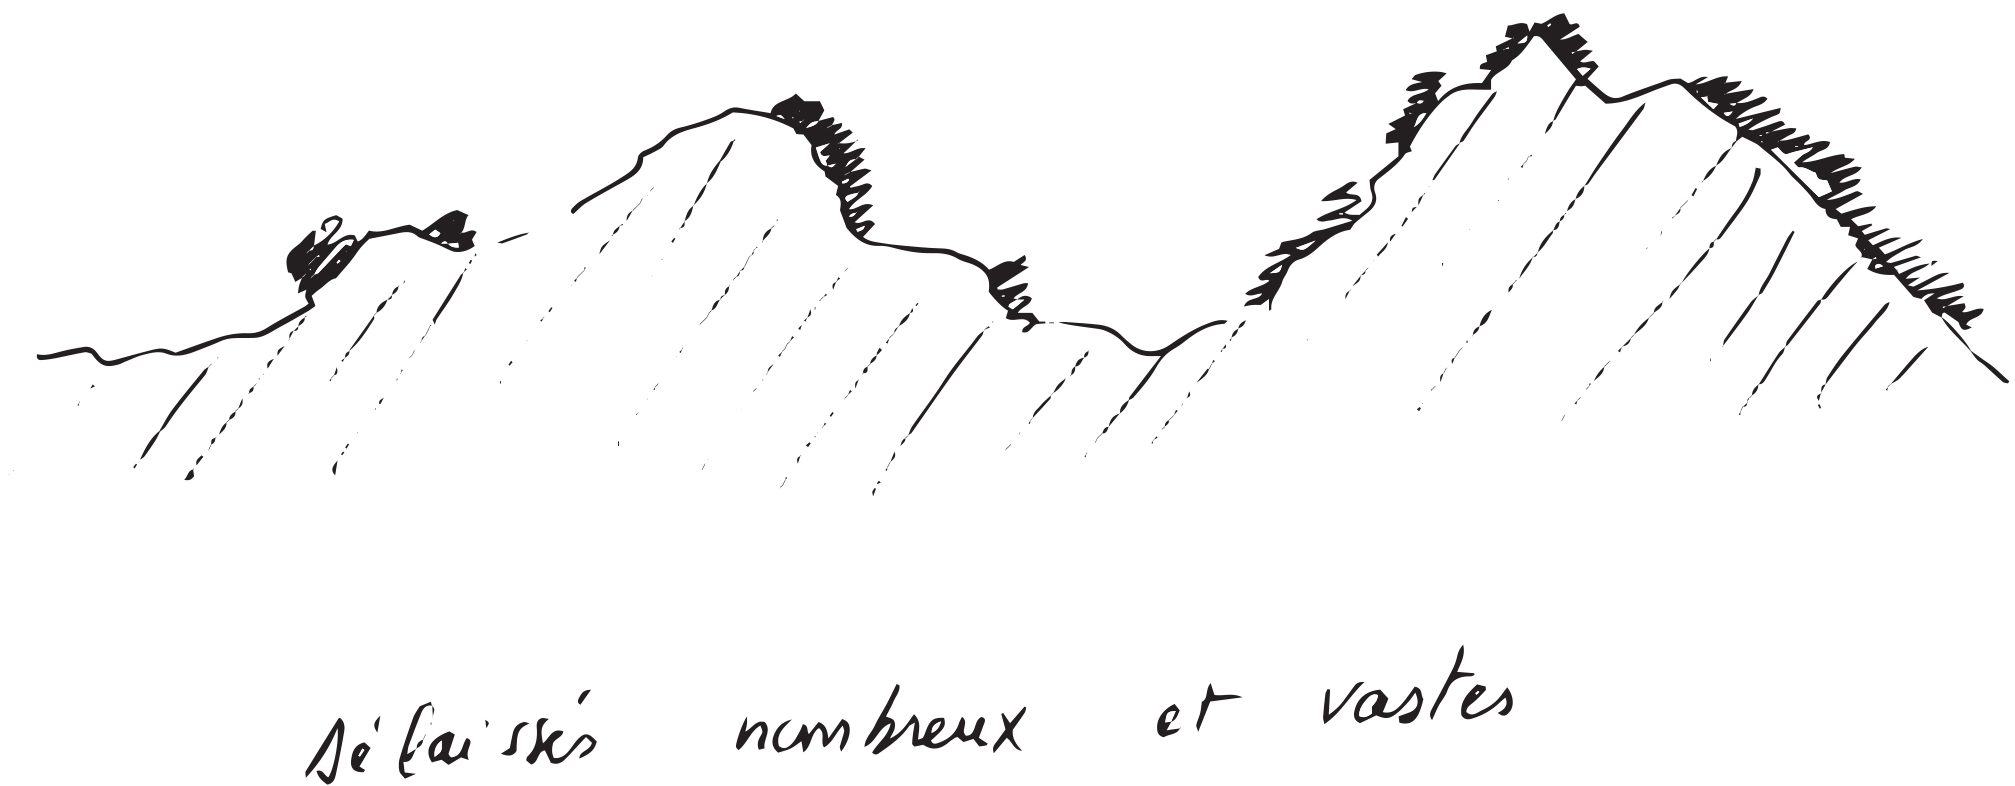 délaissés nombreux et vastes